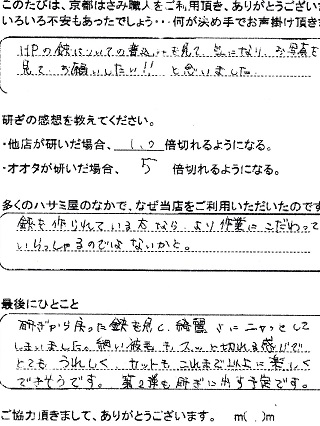 このたびは、京都はさみ職人をご利用頂き、ありがとうござい
いろいろ不安もあったでしょう・・・何が決め手でお声掛け頂き
HPの鋏についての書込みを見て 気になり、お写真を
見て、お願いしたい!! と思いました。
研ぎの感想を教えてください。
・他店が研いだ場合、 1.0 倍切れるようになる。
・オオタが研いだ場合、 5 倍切れるようになる。
多くのハサミ屋のなかで、なぜ当店をご利用いただいたのです
鋏を作られている方なら、より作業にこだわって
いらっしゃるのではないかと。
最後にひとこと
研ぎから戻った鋏を見て、綺麗さにニヤッとして
しまいました。細い被毛もスッと切れる感じで
とても うれしく、カットも これまで以上に楽しく
できそうです。 第2弾も研ぎに出す予定です。
ご協力頂きまして、ありがとうございます。 m(. .)m